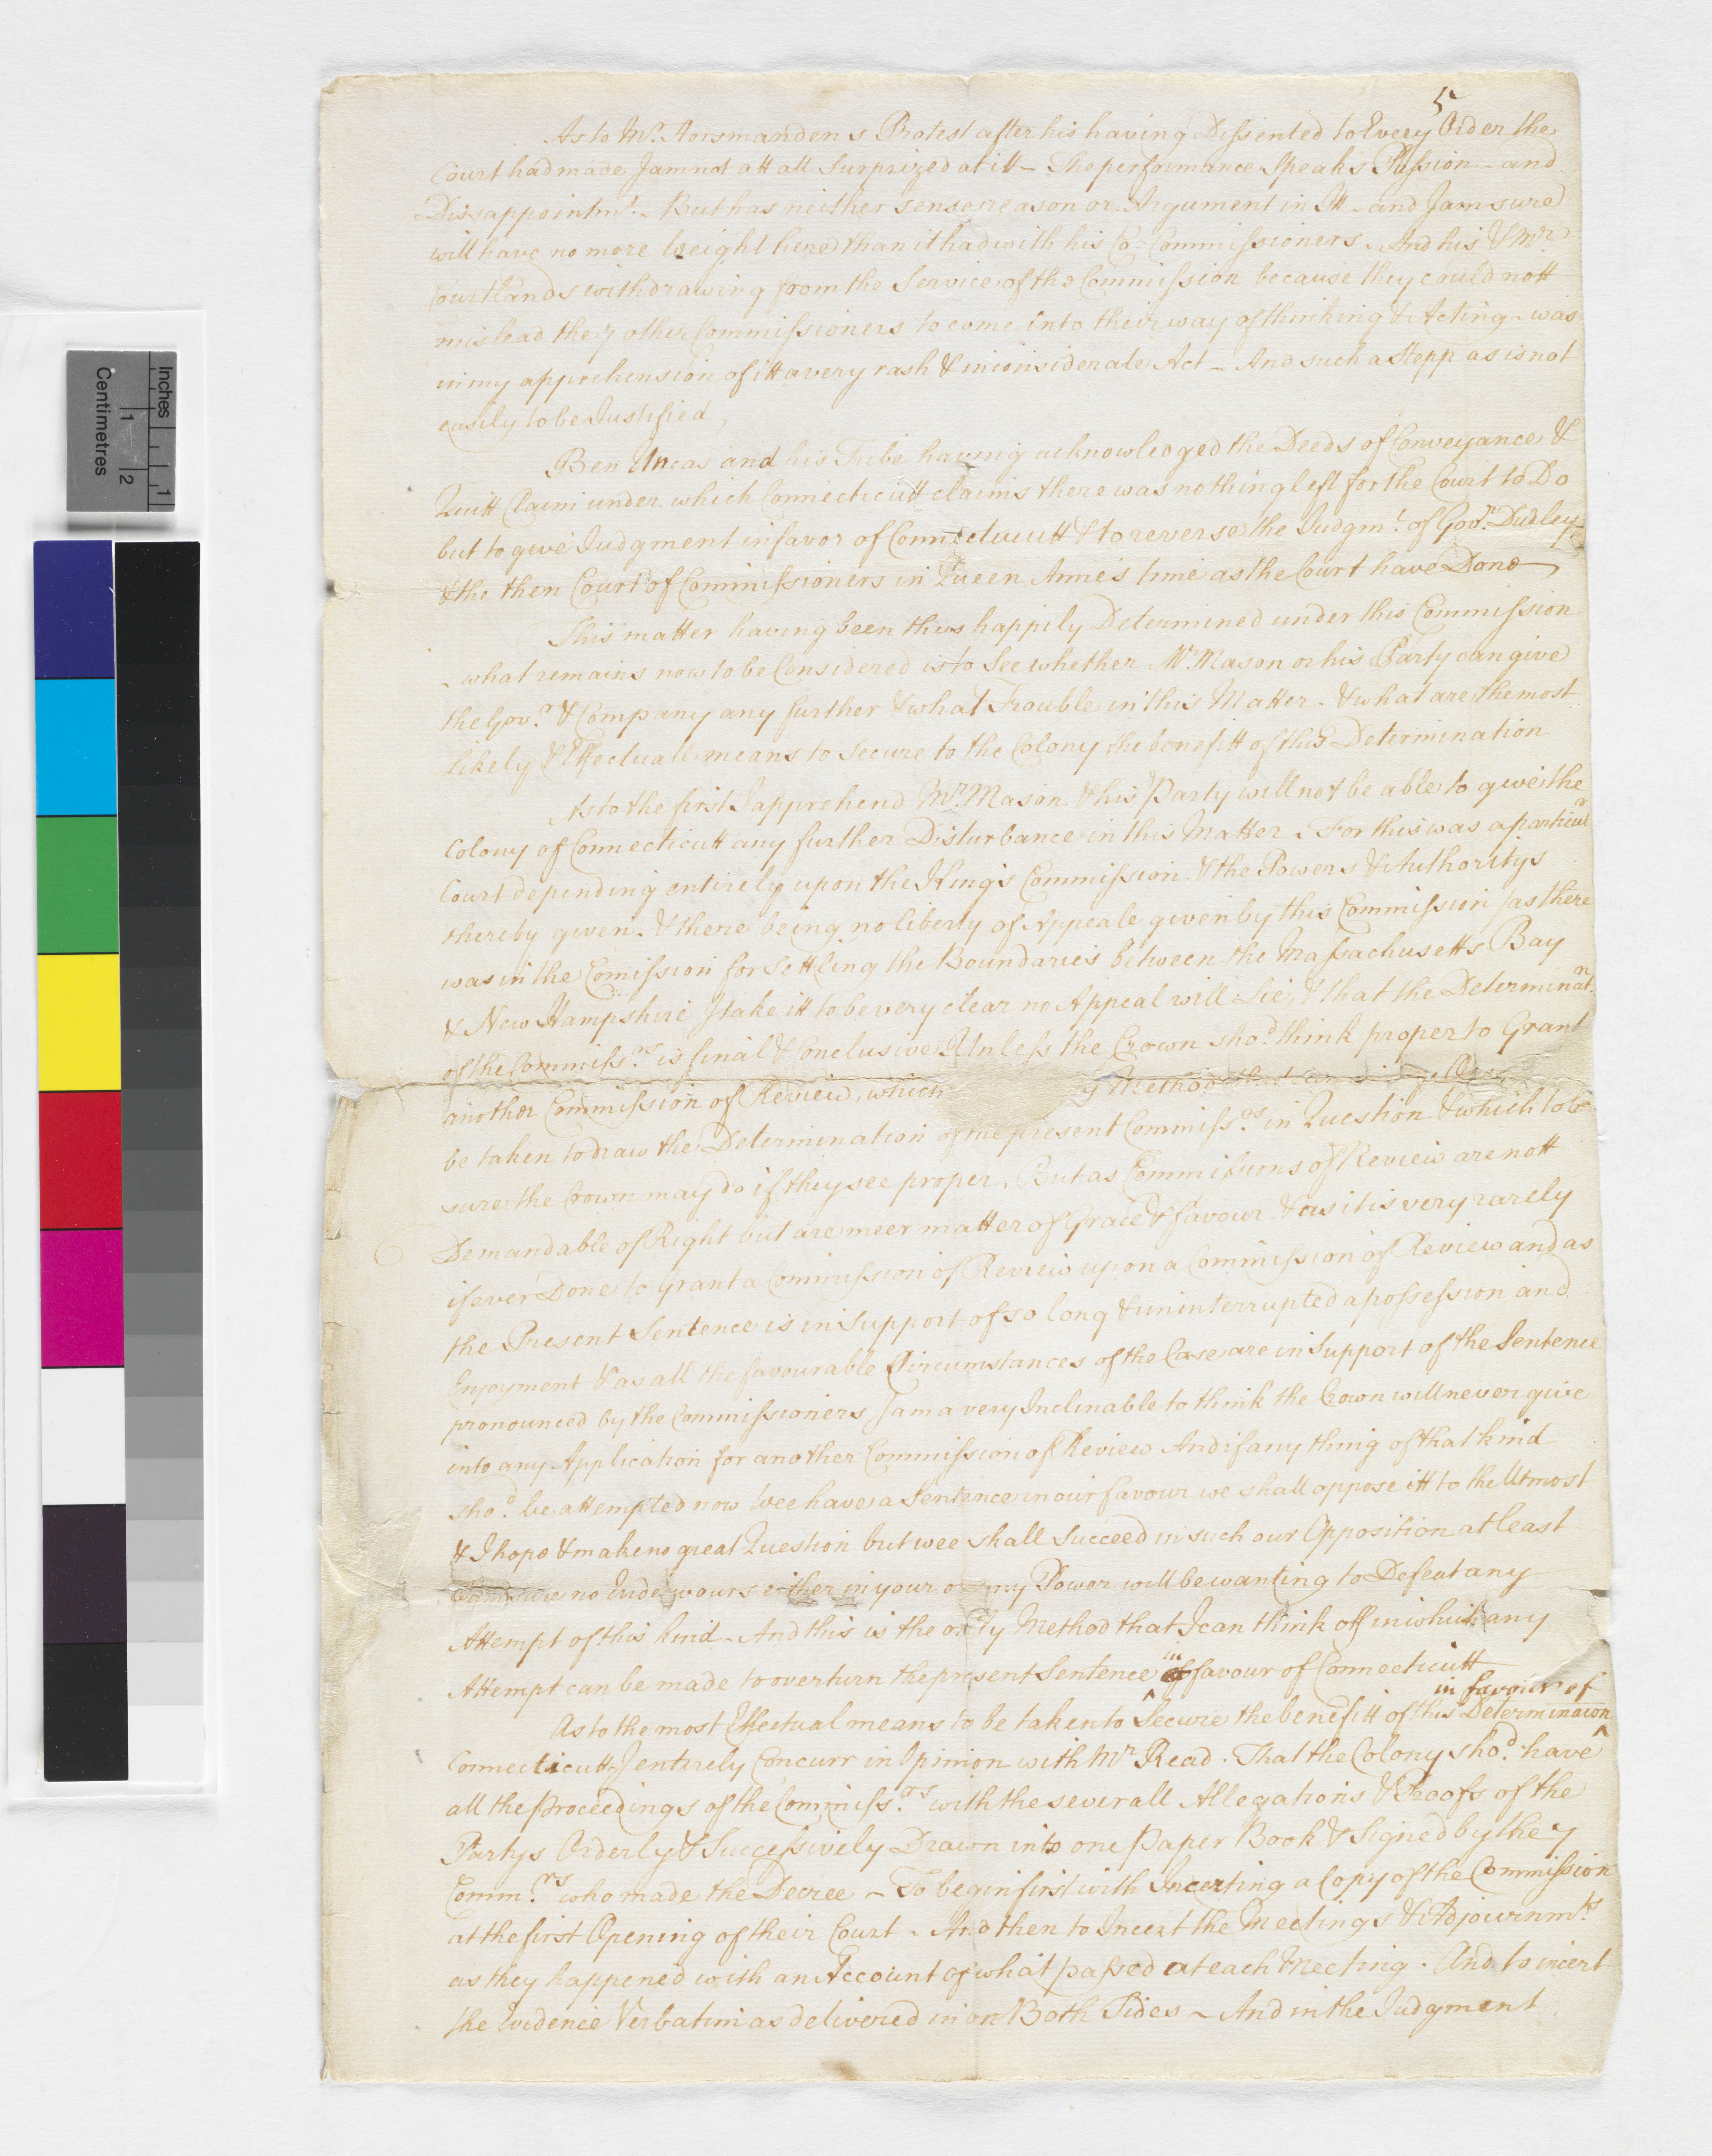 5
As to Mr. Horsmandens Protest after his having Dissented to Every Order the
Court had made I am not att all Surprized at itt - The performance Speaks Passion - and
Dissappointmt. - But has neither sense reason or Argument in Itt - and I am sure
will have no more Weight here than it had with his Co-Commissioners. And his & Mr.
Courtlands withdrawing from the Service of the Commission because they could nott
mislead the 7 other Commissioners to come into their way of thinking & Acting - was
in my apprehension of itt a very rash & inconsiderate Act - And such a Stepp as is not
easily to be Justified,
Ben Uncas and his Tribe having acknowledged the Deeds of Conveyance &
Quitt Claim under which Connecticutt claims there was nothing left for the Court to Do
but to give Judgment in favor of Connecticutt & to reverse the Judgmt. of Govr. Dudley
& the then Court of Commissioners in Queen Anne's time as the Court have Done
This matter having been thus happily Determined under this Commission
- what remains now to be Considered is to See whether Mr. Mason or his Party can give
the Govr. & Company any further & what Trouble in this Matter. & what are the most
likely & Effectuall means to Secure to the Colony the benefitt of this Determination
As to the first I apprehend Mr. Mason & his Party will not be able to give the
Colony of Connecticutt any further Disturbance in this Matter. For this was a particulr
Court depending entirely upon the King's Commission & the Powers & Authoritys
thereby given. & there being no liberty of Appeale given by this Commission / as there
was in the Comission for Settling the Boundaries between the Massachusetts Bay
& New Hampshire I take itt to be very clear no Appeal will Lie, & that the Determinatn.
of the Commissrs. is final & Conclusive Unless the Crown shod. think proper to Grant
another Commission of Review, which Method that can in any
be taken to draw the Determination of the present Commissrs. in Question & which to be
sure the Crown may do if they see proper. But as Commissions of Review are nott
Demandable of Right but are meer matter of Grace & favour & as it is very rarely
if ever Done to Grant a Commission of Review upon a Commission of Review and as
the Present Sentence is in Support of so long & uninterrupted a possession and
Enjoyment & as all the favourable Circumstances of the Case are in Support of the Sentence
pronounced by the Commissioners I am a very Inclinable to think the Crown will never give
into any Application for another Commission of Review And if any thing of that kind
shod. be attempted now Wee have a Sentence in our favour we shall oppose itt to the Utmost
& I hope & make no great Question but wee shall Succeed in such our Opposition at least
I am sure no Endeavours either in your or my Power will be wanting to Defeat any
Attempt of this kind - And this is the only Method that I can think off in which any
Attempt can be made to overturn the present Sentence in favour of Connecticutt
As to the most Effectual means to be taken to Secure the benefitt of this Determinacon in favour of
Connecticutt I entirely Concurr in Opinion with Mr Read. That the Colony shod. have
all the proceedings of the Commissrs. with the severall Allegations & Proofs of the
Partys Orderly & Successively Drawn into one Paper Book & Signed by the 7
Commrs. who made the Decree - To begin first with Incerting a Copy of the Commission
at the first Opening of their Court - And then to Incert the Meetings & Adjournmts.
as they happened with an Account of what passed at each Meeting. And to incert
the Evidence Verbatim as delivered in on Both Sides - And in the Judgment
Inches
1
Centimetres
1
2